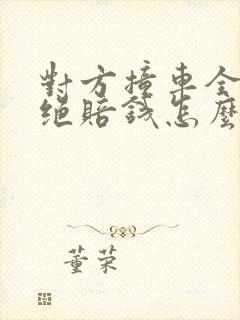 對方撞車全
絕賠錢怎麼
董荣